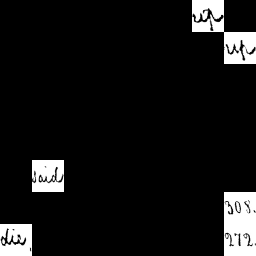 up
up
said
308.
die.
272.